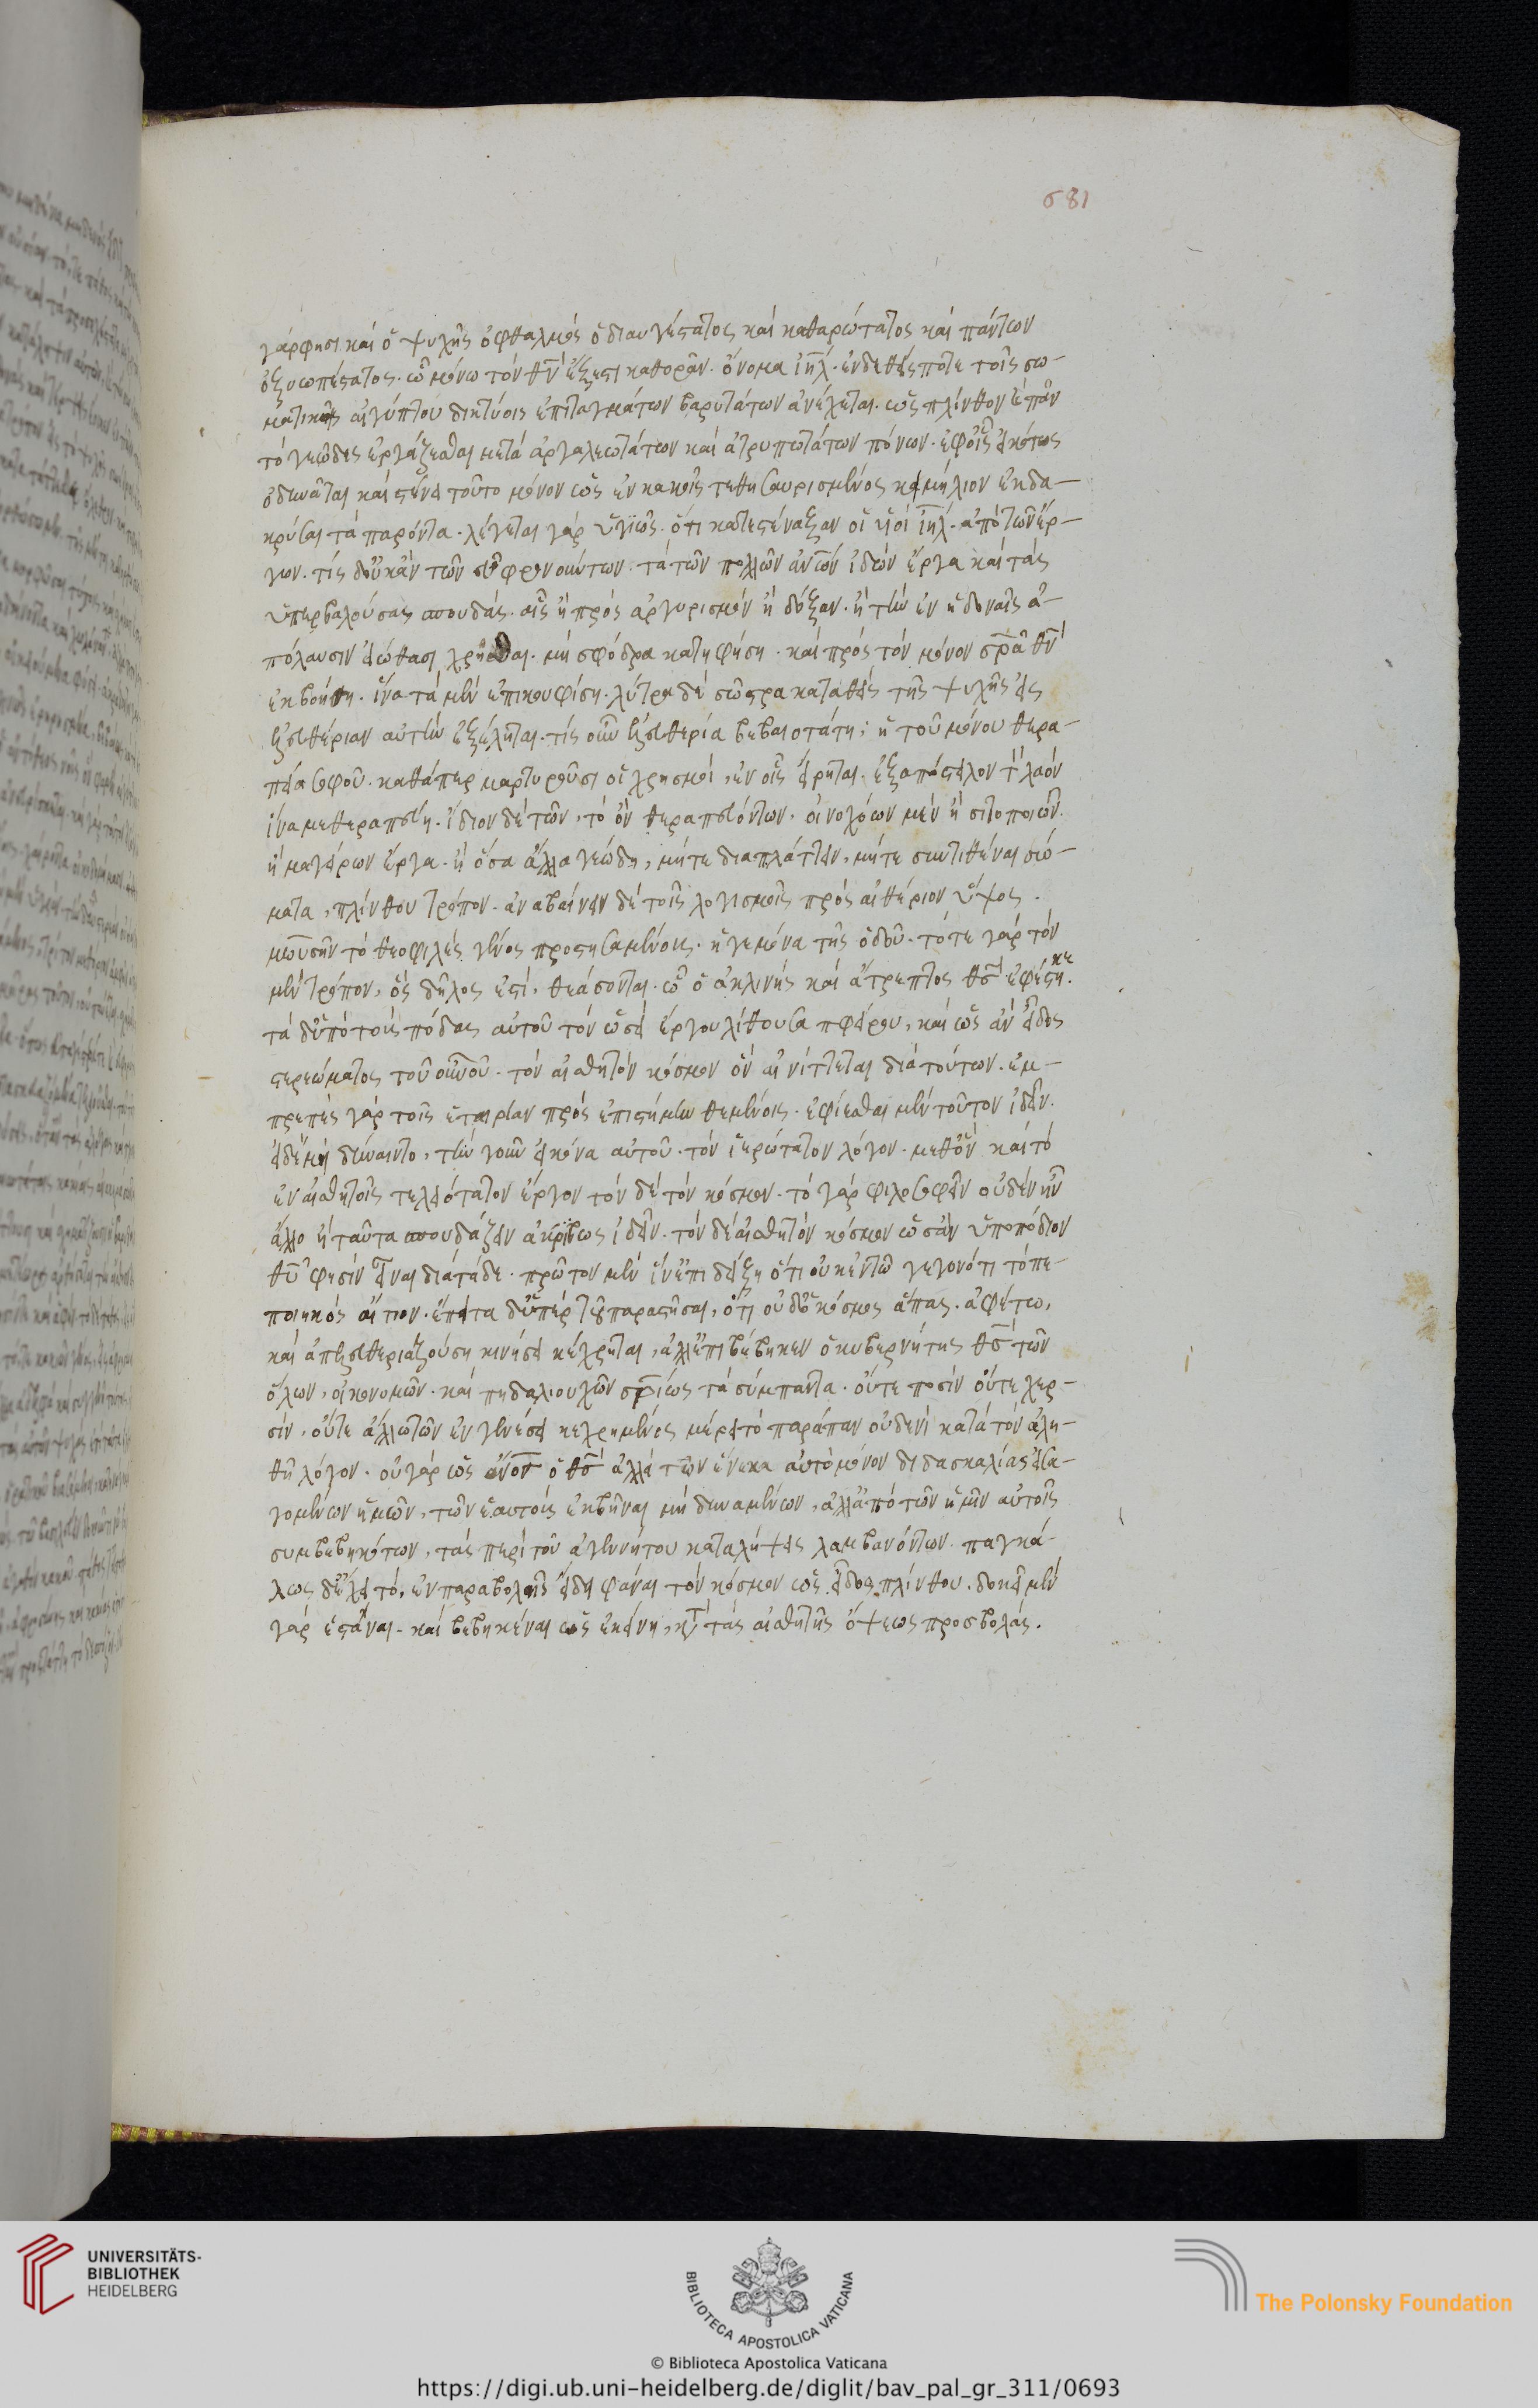 σ 81
γάρ φησι καὶ ὁ ψυχῆς ὀφθαλμὸς ὁ διαυγέστατος καὶ καθαρώτατος καὶ πάντων
ὀξυωπέστατος. ᾧ μόνω τὸν θν ἔξεστι καθορᾶν. ὄνομα ιηλ. ἐνδεθείς ποτε τοῖς σω-
ματικοῖς αἰγύπτου δικτύοις ἐπιταγμάτων βαρυτάτων ἀνέχεται. ὡς πλίνθον πᾶν
τὸ γεῶδες ἐργάζεσθαι μετὰ ἀργαλεωτάτων καὶ ἀτρυπωτάτων πόνων. ἐφοἷς εἰκότως
ὀδυνᾶται καὶ στένει τοῦτο μόνον ὡς ἐν κακοῖς τεθησαυρισμένος κειμήλιον ἐκδα-
κρύσαι τὰ παρόντα. λέγεται γὰρ ὑγιῶς. ὅτι κατεστέναξαν οἱ υἱοὶ ιηλ. ἀπὸ τῶν ἔρ-
γων. τίς δοὐκὰν τῶν εὐφρονούντων. τὰ τῶν πολλῶν ανων ἰδὼν ἔργα καὶ τὰς
ὑπερβαλούσας σπουδάς. αἷς ἢ πρὸς ἀργυρισμὸν ἢ δόξαν. ἢ τὴν ἐν ἡδοναῖς ἀ-
πόλαυσιν εἰώθασι χρῆσθαι. μὴ σφόδρα κατηφήση. καὶ πρὸς τὸν μόνον σρα θν
ἐκβοήση. ἵνα τὰ μὲν ἐπικουφίση. λύτρα δὲ σῶστρα καταθεὶς τῆς ψυχῆς εἰς
ἐλευθερίαν αὐτὴν ἐξέληται. τίς οὖν ἐλευθερία βεβαιοτάτη; ἡ τοῦ μόνου θερα-
πεία σοφοῦ. καθάπερ μαρτυροῦσι οἱ χρησμοί, ἐν οἷς εἴρηται. ἐξαπόστειλον τ λαὸν
ἵνα με θεραπεύη. ἴδιον δὲ τῶν, τὸ ὂν θεραπευόντων. οἰνοχόων μὲν ἢ σιτοποιῶν.
ἢ μαγείρων ἔργα. ἢ ὅσα ἄλλα γεώδη, μήτε διαπλάττειν, μήτε συντιθέναι σώ-
ματα, πλίνθου τρόπον. ἀναβαίνειν δὲ τοῖς λογισμοῖς πρὸς αἰθέριον ὕψος.
μωυσῆν τὸ θεοφιλὲς γένος προστησαμένοις. ἡγεμόνα τῆς ὁδοῦ. τότε γὰρ τὸν
μὲν τρόπον, ὃς δῆλος ἐστί, θεάσονται. ᾧ ὁ ἀκλινὴς καὶ ἄτρεπτος θς ἐφέστηκε.
τὰ δὑπὸ τοὺς πόδας αὐτοῦ τὸν ὡσεὶ ἔργου λίθου σαπφείρου, καὶ ὡς ἂν εἶδος
στερεώματος τοῦ ουνου. τὸν αἰσθητὸν κόσμον ὃν αἰνίττεται διὰ τούτων. ἐμ-
πρεπὲς γὰρ τοῖς ἑταιρίαν πρὸς ἐπιστήμην θεμένοις. ἐφίεσθαι μὲν τοῦτον ἰδεῖν.
εἰ δὲ μὴ δύναιντο, τὴν γοῦν εἰκόνα αὐτοῦ. τὸν ἱερώτατον λόγον. μεθὃν καὶ τὸ
ἐν αἰσθητοῖς τελειότατον ἔργον τὸν δὲ τὸν κόσμον. τὸ γὰρ φιλοσοφεῖν οὐδὲν ἦν
ἄλλο ἢ ταῦτα σπουδάζειν ἀκριβῶς ἰδεῖν. τὸν δὲ αἰσθητὸν κόσμον ὡσὰν ὑποπόδιον
θυ φησὶν εἶναι διὰ τάδε. πρῶτον μὲν ἵνἐπιδείξη ὅτι οὐκ ἐν τῶ γεγονότι τὸ πε-
ποιηκὸς αἴτιον. ἔπειτα δὑπὲρ τοῦ παραστῆσαι, ὅτι οὐδὁ κόσμος ἅπας. ἀφέτω,
καὶ ἀπελευθεριαζούση κινήσει κέχρηται, ἀλλἐπιβέβηκεν ὁ κυβερνήτης θς τῶν
ὅλων, οἰκονομῶν. καὶ πηδαλιουχῶν σριως τὰ σύμπαντα. οὔτε ποσὶν οὔτε χερ-
σὶν, οὔτε ἄλλω τῶν ἐν γενέσει κεχρημένος μέρει τὸ παράπαν οὐδενὶ κατὰ τὸν ἀλη-
θῆ λόγον. οὐ γὰρ ὡς ανος ὁ θς ἀλλὰ τῶν ἕνεκα αὐτὸ μόνον διδασκαλίας εἰσα-
γομένων ἡμῶν, τῶν ἑαυτοὺς ἐκβῆναι μὴ δυναμένων, ἀλλἀπὸ τῶν ἡμῖν αὐτοῖς
συμβεβηκότων, τὰς περὶ τοῦ ἀγεννήτου καταλήψεις λαμβανόντων. παγκά-
λως δἔχει τό, ἐν παραβολῆς εἴδη φάναι τὸν κόσμον ὡς εἶδος πλίνθου. δοκεῖ μὲν
γὰρ ἑστάναι. καὶ βεβηκέναι ὡς ἐκείνη, κατὰ τὰς αἰσθητῆς ὄψεως προσβολάς.
UNIVERSITÄTS-
BIBLIOTHEK
HEIDELBERG
BIBLIOTECA APOSTOLICA VATICANA
The Polonsky Foundation
© Biblioteca Apostolica Vaticana
https://digi.ub.uni-heidelberg.de/diglit/bav_pal_gr_311/0693